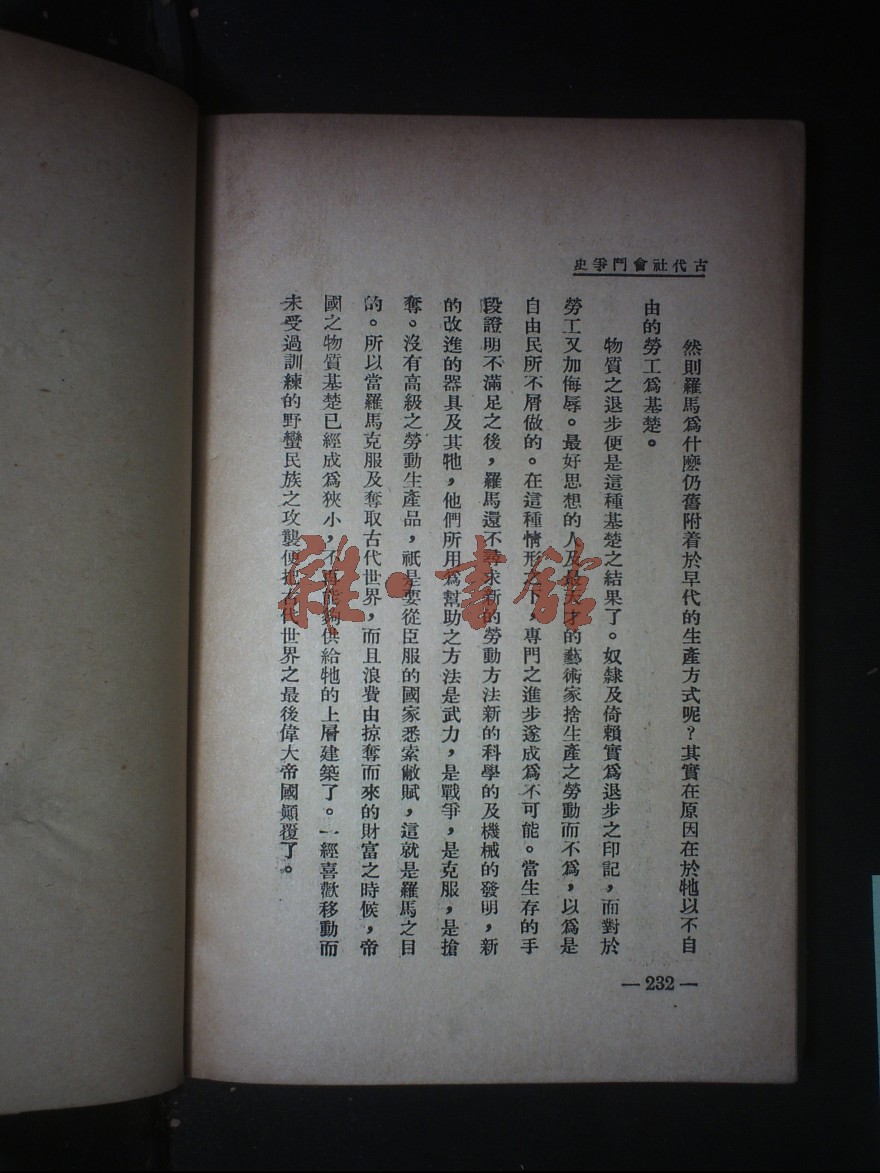 古代社會鬥爭史
然則羅馬爲什麼仍舊附着於早代的生產方式呢？其實在原因在於牠以不自
由的勞工爲基楚。
物質之退步便是這種基楚之結果了。奴隸及倚賴實爲退步之印記，而對於
勞工又加侮辱。最好思想的人及最天才的藝術家捨生產之勞動而不爲，以爲是
自由民所不屑做的。在這種情形之下，專門之進步遂成爲不可能。當生存的手
段證明不滿足之後，羅馬還不尋求新的勞動方法新的科學的及機械的發明，新
的改進的器具及其牠，他們所用爲幫助之方法是武力，是戰爭，是克服，是搶
奪。沒有高級之勞動生產品，祇是要從臣服的國家悉索敝賦，這就是羅馬之目
的。所以當羅馬克服及奪取古代世界，而且浪費由掠奪而來的財富之時候，帝
國之物質基楚已經成爲狹小，不再能夠供給牠的上層建築了。一經喜歡移動而
未受過訓練的野蠻民族之攻襲便把古代世界之最後偉大帝國顚覆了。
— 232 —
雜·書館